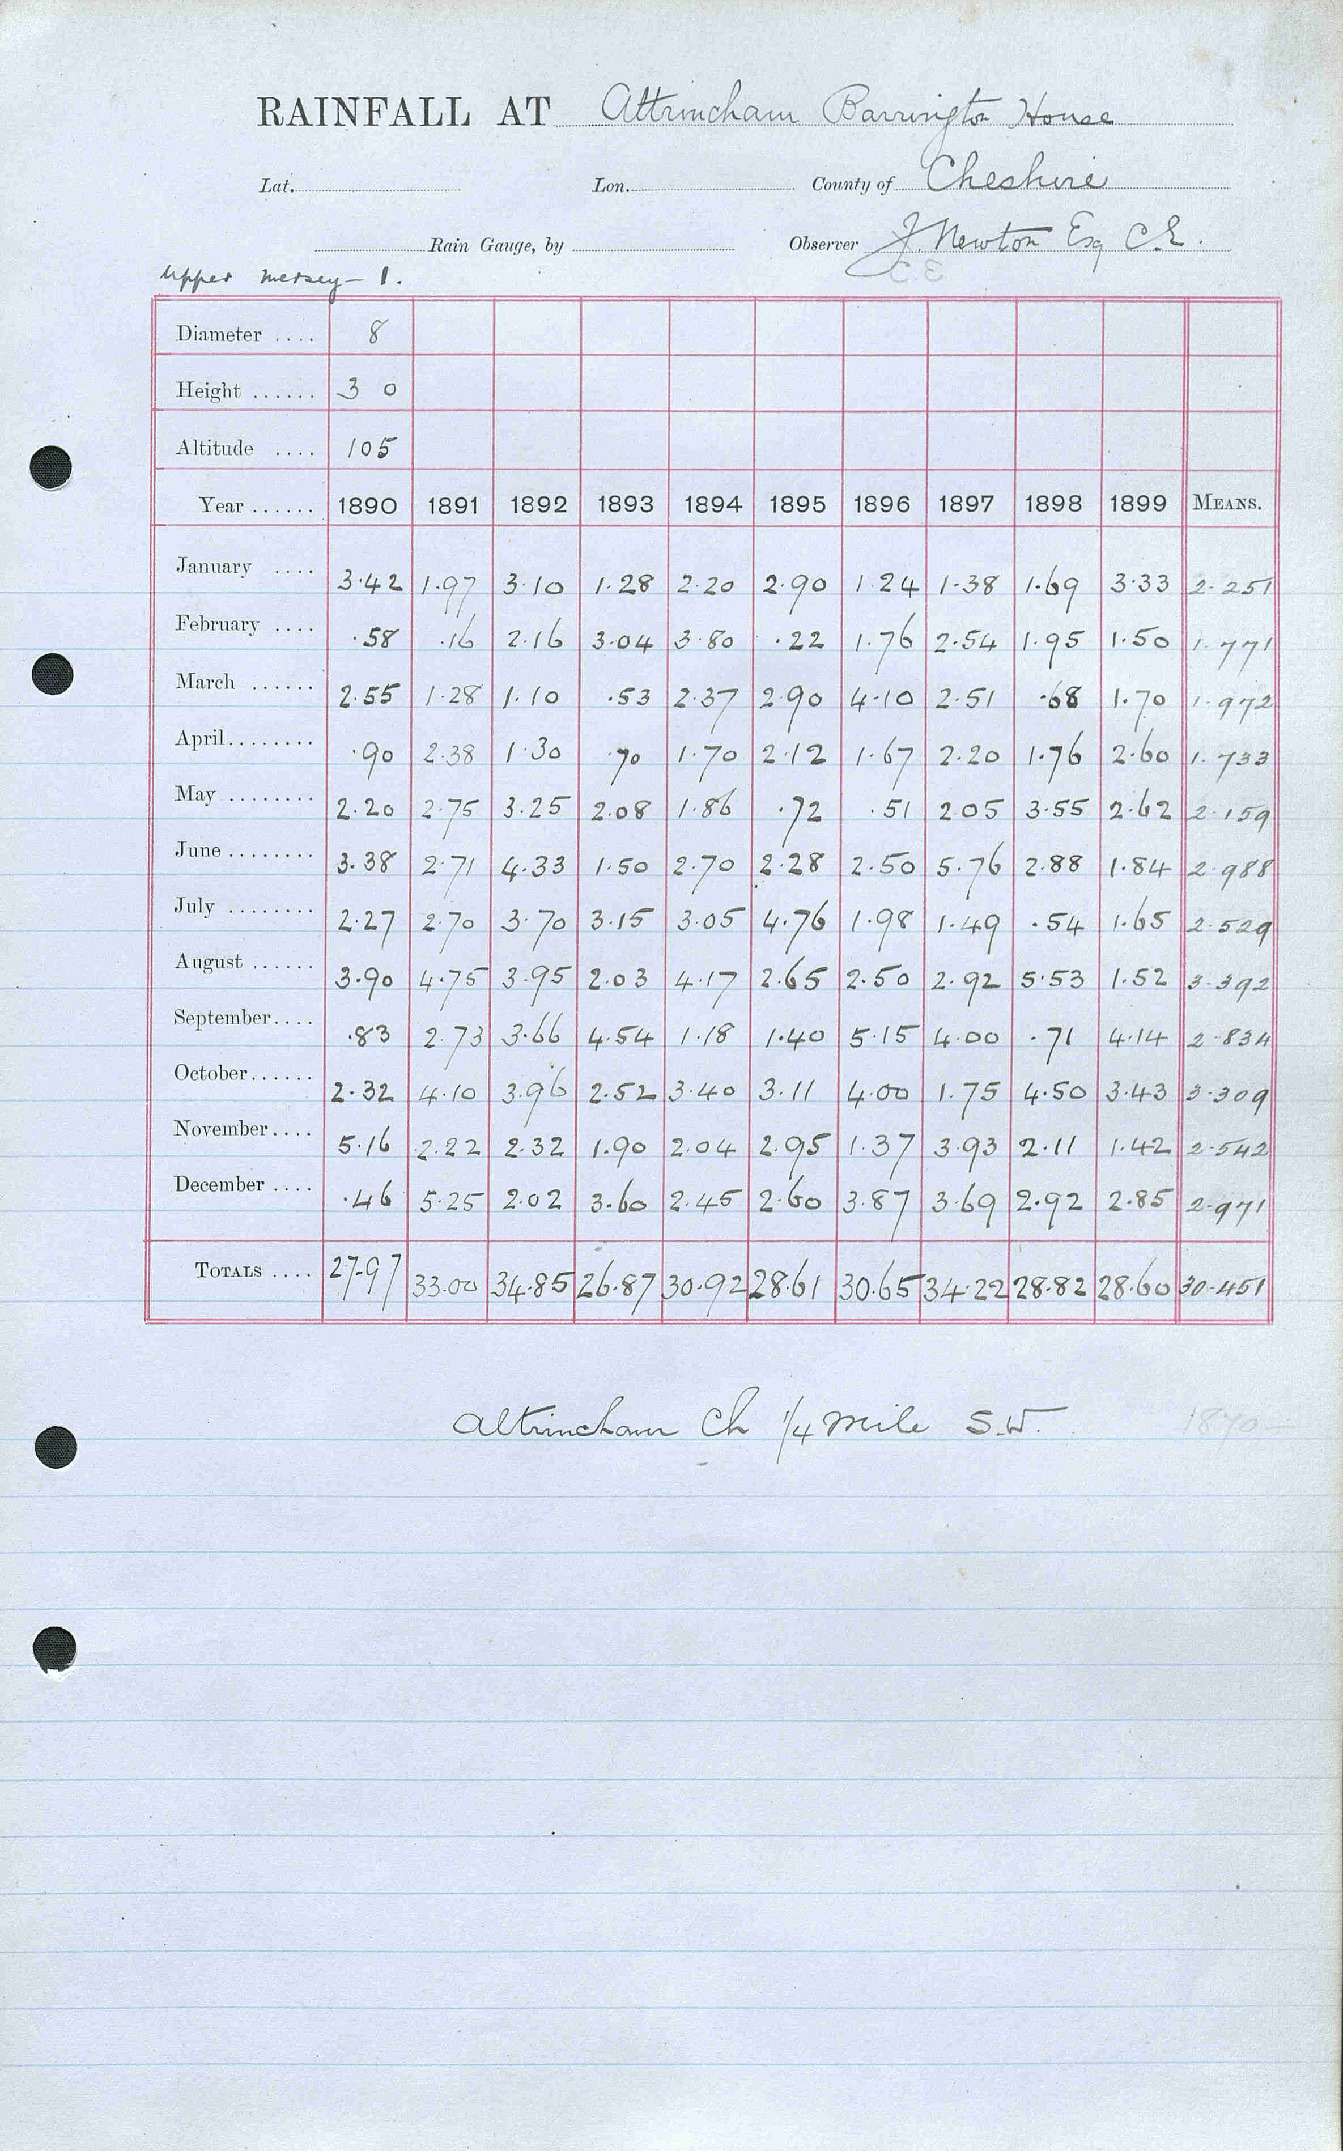 RAINFALL AT Altrincham Barrington House
Lat. Lon. County of Cheshire
Rain Gauge, by Observer J. Newton Esq C.E.
C E
Upper Mersey - 1.
Diameter .... 8
Height ...... 3 0
Altitude .... 105
Year ...... 1890 1891 1892 1893 1894 1895 1896 1897 1898 1899 MEANS.
January .... 3.42 1.97 3.10 1.28 2.20 2.90 1.24 1.38 1.69 3.33 2.251
February .... .58 .16 2.16 3.04 3.80 .22 1.76 2.54 1.95 1.50 1.771
March ...... 2.55 1.28 1.10 .53 2.37 2.90 4.10 2.51 .68 1.70 1.972
April........ .90 2.38 1.30 .70 1.70 2.12 1.67 2.20 1.76 2.60 1.733
May ........ 2.20 2.75 3.25 2.08 1.86 .72 .51 2.05 3.55 2.62 2.159
June ........ 3.38 2.71 4.33 1.50 2.70 2.28 2.50 5.76 2.88 1.84 2.988
July ........ 2.27 2.70 3.70 3.15 3.05 4.76 1.98 1.49 .54 1.65 2.529
August ...... 3.90 4.75 3.95 2.03 4.17 2.65 2.50 2.92 5.53 1.52 3.392
September.... .83 2.73 3.66 4.54 1.18 1.40 5.15 4.00 .71 4.14 2.834
October...... 2.32 4.10 3.96 2.52 3.40 3.11 4.00 1.75 4.50 3.43 3.309
November.... 5.16 2.22 2.32 1.90 2.04 2.95 1.37 3.93 2.11 1.42 2.542
December .... .46 5.25 2.02 3.60 2.45 2.60 3.87 3.69 2.92 2.85 2.971
TOTALS .... 27.97 33.00 34.85 26.87 30.92 28.61 30.65 34.22 28.82 28.60 30.451
Altrincham Ch 1/4 mile S.W.
1870